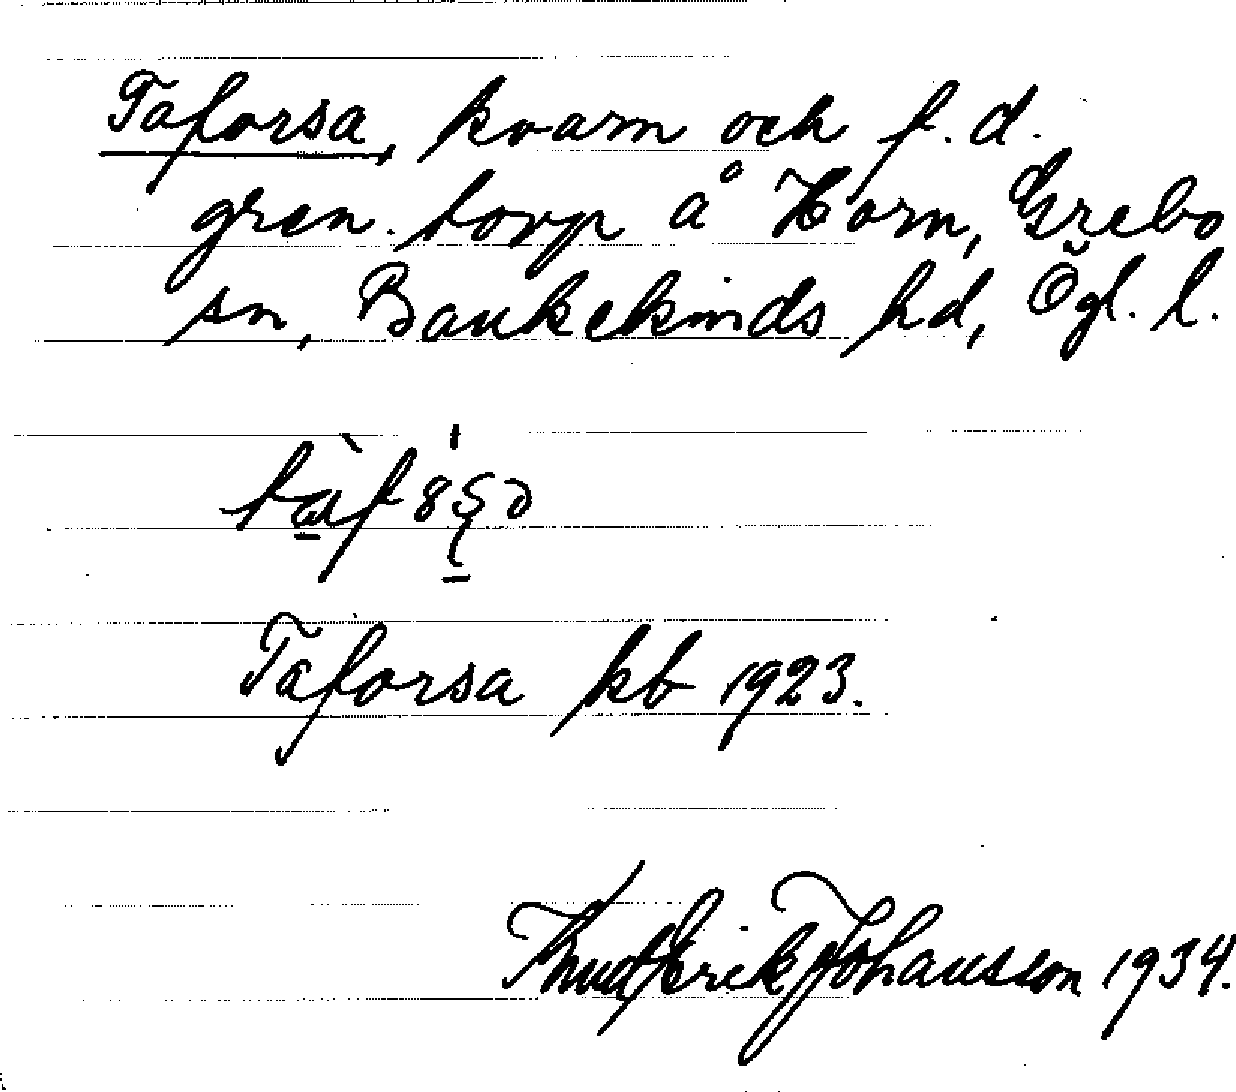 Taforsa, kvarn och f.d.
gren.torp å Horn, Grebo
sn, Bankekinds hd, Ögl. l.
Taforsa kb 1923.
Knut Erik Johansson 1934.